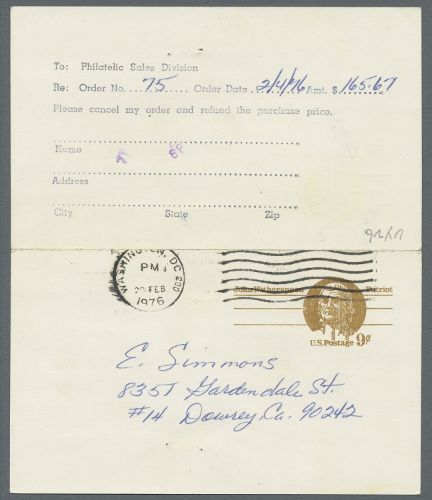 To: Philatelic Sales Division
Re: Order No....75..... Order Date 2/4/76 Amt. $.165.67
Please cancel my order and refund the purchase price.
Name
Address
City State Zip
WASHINGTON, DC 200
PM
20 FEB
1976
John Witherspoon Patriot
U.S. Postage 9¢
E. Simmons
8351 Gardendale St.
#14 Downey Ca. 90242